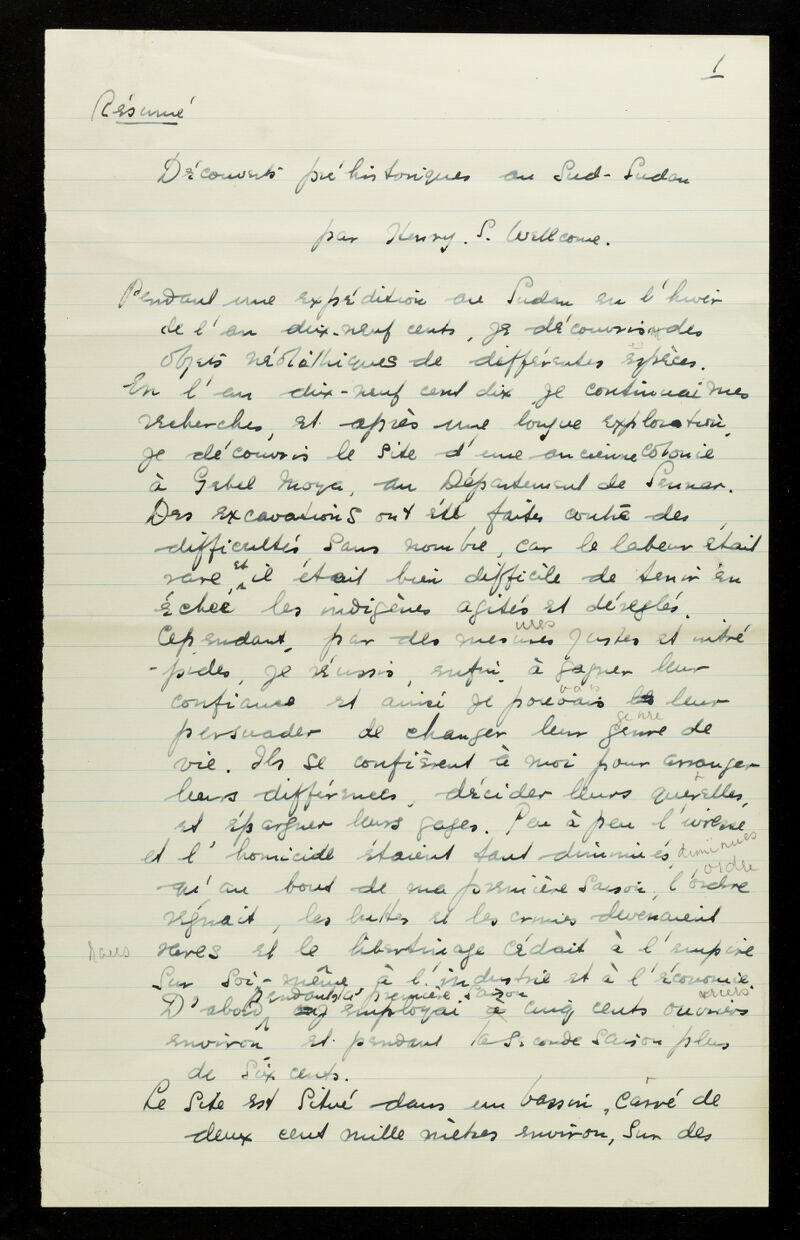 1
Résumé
Découverts préhistoriques au Sud-Sudan
par Henry. S. Wellcome.
Pendant une expédition au Sudan en l'hiver
de l'an dix-neuf cents, je découvris des
objets néolithiques de différentes espèces.
En l'an dix-neuf cent dix je continuai mes
recherches, et après une longue exploration,
je découvris le site d'une ancienne colonie
à Gebel Moya, au Département de Sennar.
Des excavations ont été faites contre des
difficultés sans nombre, car le labeur était
rare, et il était bien difficile de tenir en
échec les indigènes agités et déréglés.
ures
Cependant, par des mesures justes et intré
-pides, je réussis, enfin, à gagner leur
vais
confiance et ainsi je pouvais leur
genre
persuader de changer leur genre de
vie. Ils se confièrent à moi pour arranger
leurs différences, décider leurs querelles,
et épargner leurs gages. Peu à peu l'ivresse
et l'homicide étaient tant diminués, diminués
ordre
qu'au bout de ma première saison, l'ordre
régnait, les luttes et les crimes devenaient
rares rares et le libertinage cédait à l'empire
sur soi-même à l'industrie et à l'économie.
pendant la première saison
vriers
D'abord j'employai à cinq cents ouvriers
environ et pendant la seconde saison plus
de six cents.
Le site est situé dans un bassin, carré de
deux cent mille mètres environ, sur des